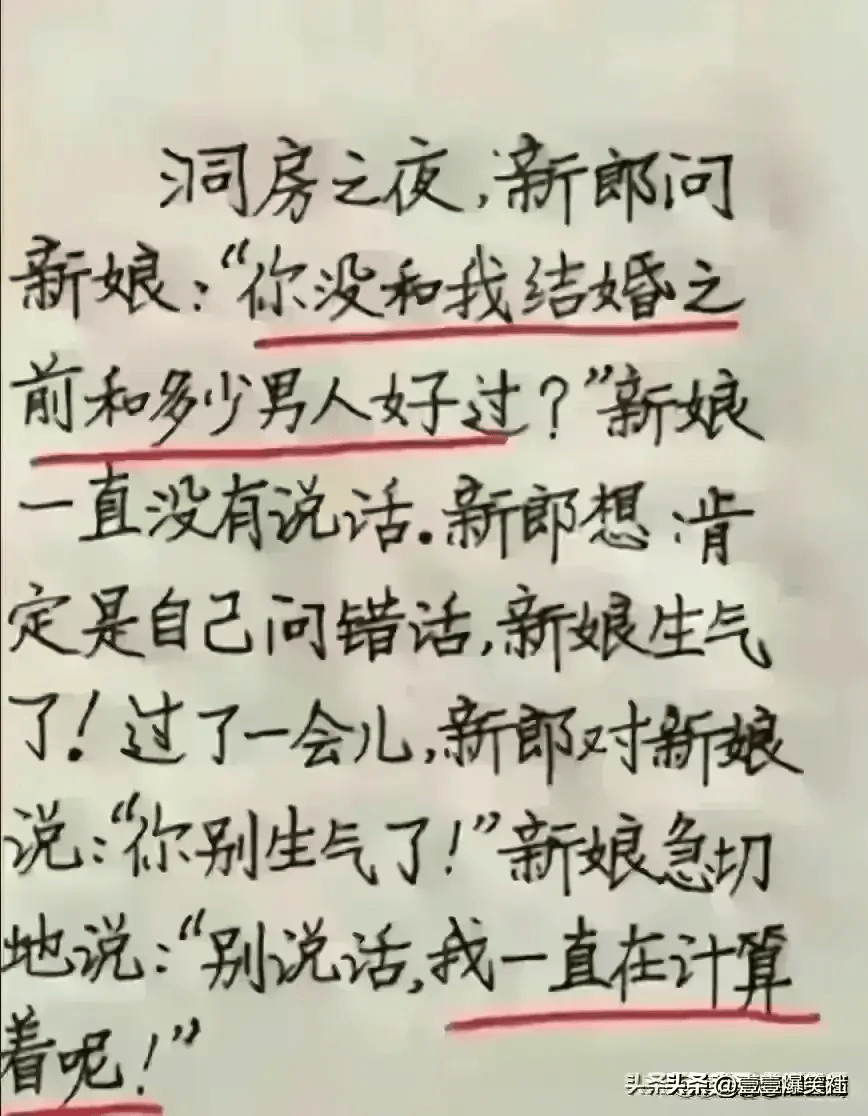 洞房之夜,新郎问
新娘:“你没和我结婚之
前和多少男人好过?”新娘
一直没有说话.新郎想:肯
定是自己问错话,新娘生气
了!过了一会儿,新郎对新娘
说:“你别生气了!”新娘急切
地说:“别说话,我一直在计算
着呢!”
头条 @壹壹爆笑街